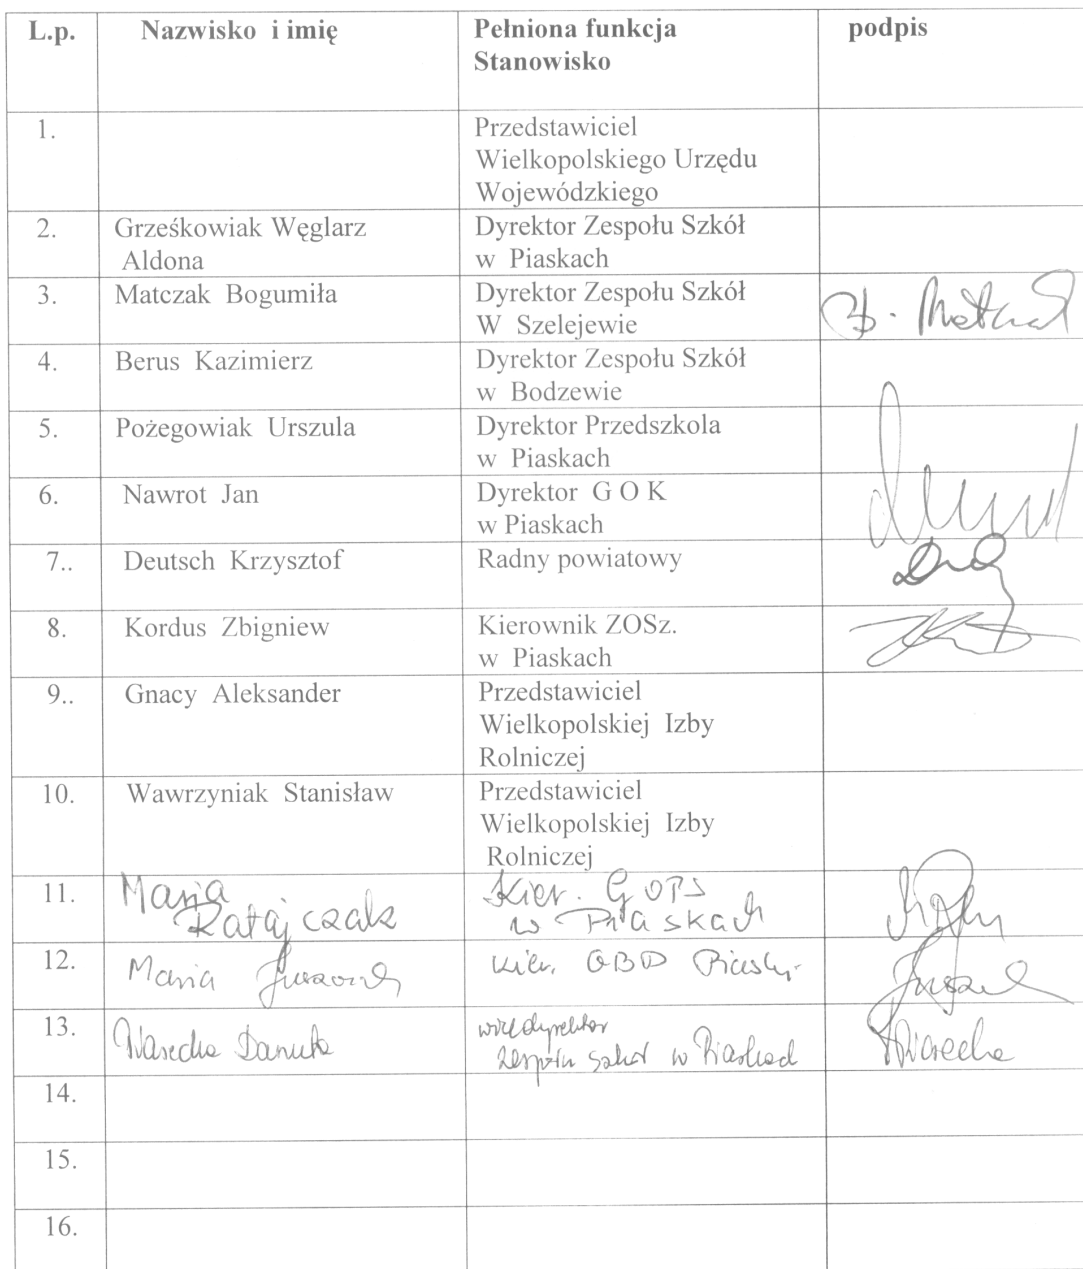 L.p. Nazwisko i imię Pełniona funkcja podpis
Stanowisko
1. Przedstawiciel
Wielkopolskiego Urzędu
Wojewódzkiego
2. Grześkowiak Węglarz Dyrektor Zespołu Szkół
Aldona w Piaskach
3. Matczak Bogumiła Dyrektor Zespołu Szkół
W Szelejewie
4. Berus Kazimierz Dyrektor Zespołu Szkół
w Bodzewie
5. Pożegowiak Urszula Dyrektor Przedszkola
w Piaskach
6. Nawrot Jan Dyrektor G O K
w Piaskach
7.. Deutsch Krzysztof Radny powiatowy
8. Kordus Zbigniew Kierownik ZOSz.
w Piaskach
9.. Gnacy Aleksander Przedstawiciel
Wielkopolskiej Izby
Rolniczej
10. Wawrzyniak Stanisław Przedstawiciel
Wielkopolskiej Izby
Rolniczej
11. Maria Kier. GOPS
Ratajczak w Piaskach
12. Maria Kier. Piaski
13. Warecka Danuta wicedyrektor
zespołu szkół w Piaskach
14.
15.
16.